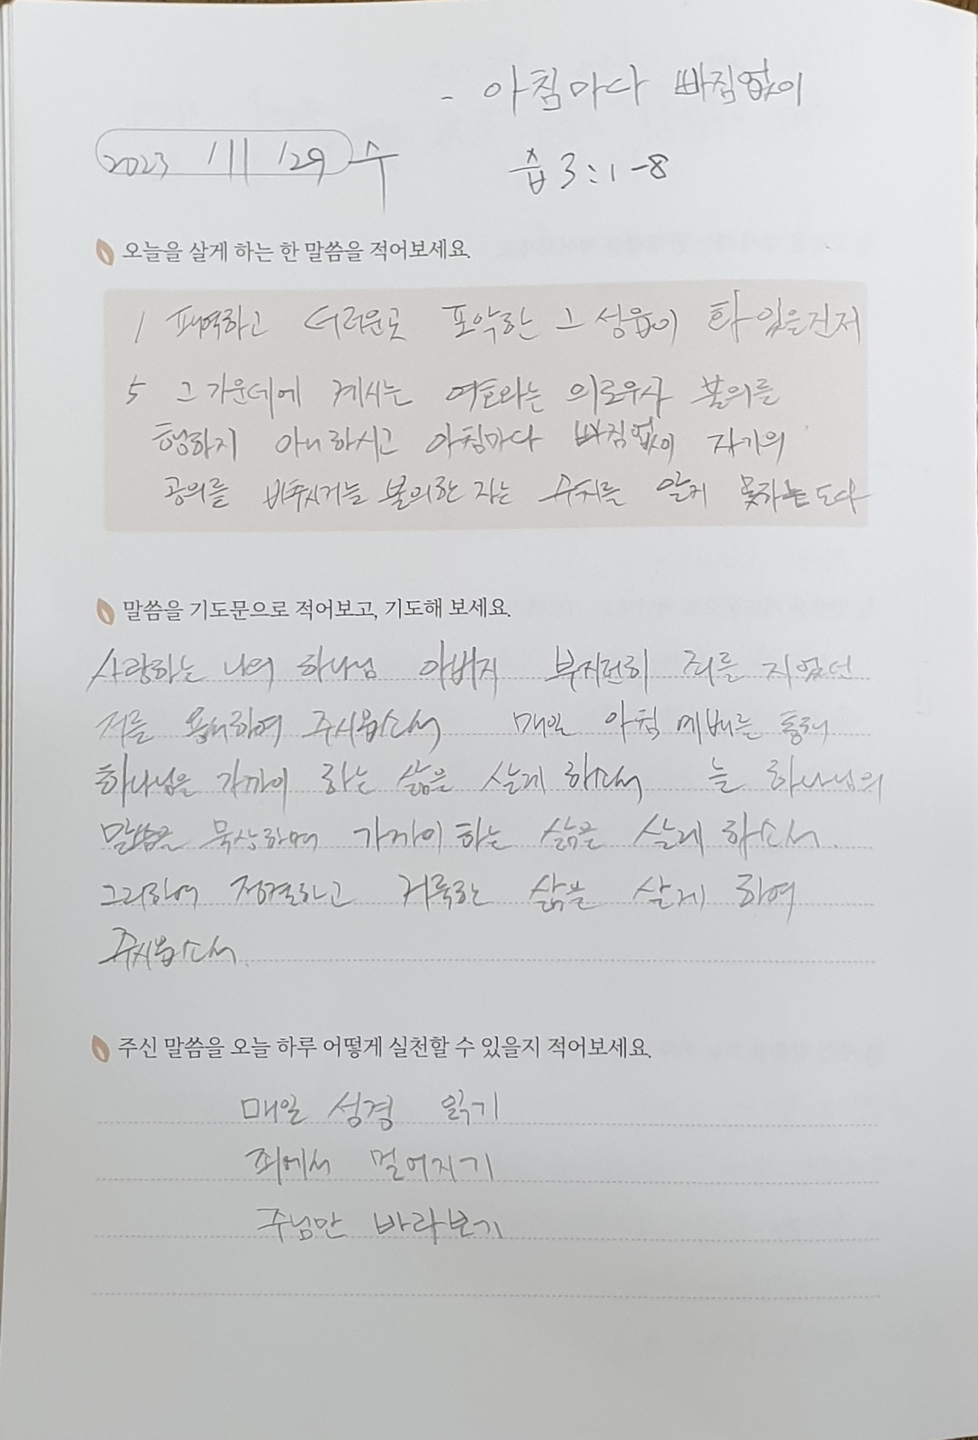 - 아침마다 빠짐없이
2023 / 11 / 29 수
습 3:1-8
오늘을 살게 하는 한 말씀을 적어보세요.
1 패역하고 더러운곳 포악한 그 성읍이 화 있을진저
5 그 가운데에 계시는 여호와는 의로우사 불의를
행하지 아니하시고 아침마다 빠짐없이 자기의
공의를 비추시거늘 불의한 자는 수치를 알지 못하는도다
말씀을 기도문으로 적어보고, 기도해 보세요.
사랑하는 나의 하나님 아버지 부지런히 죄를 지었던
저를 용서하여 주시옵소서 매일 아침 예배를 통해
하나님을 가까이 하는 삶을 살게 하소서 늘 하나님의
말씀을 묵상하며 가까이 하는 삶을 살게 하소서.
그리하여 정결하고 거룩한 삶을 살게 하여
주시옵소서.
주신 말씀을 오늘 하루 어떻게 실천할 수 있을지 적어보세요.
매일 성경 읽기
죄에서 멀어지기
주님만 바라보기